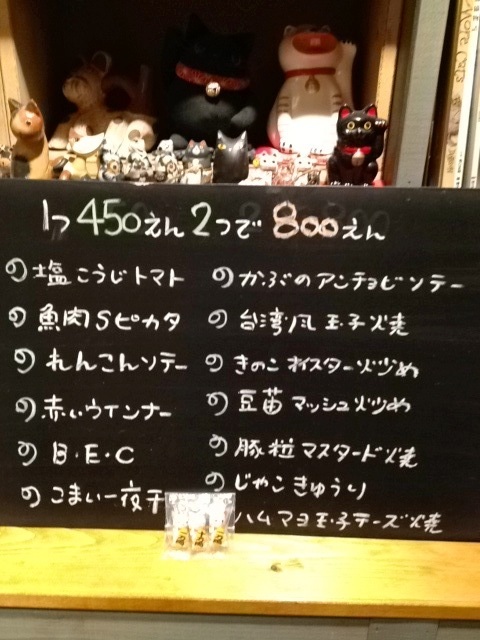 1つ450えん2つで800えん
の塩こうじトマト
の魚肉Sピカタ
のれんこんソテー
の赤いウインナー
のB・E・C
のこまい一夜干
のかぶのアンチョビソテー
の台湾風玉子焼
のきのこオイスター炒め
の豆苗マッシュ炒め
の豚粒マスタード焼
のじゃこきゅうり
ハムマヨ玉子チーズ焼
More Cats